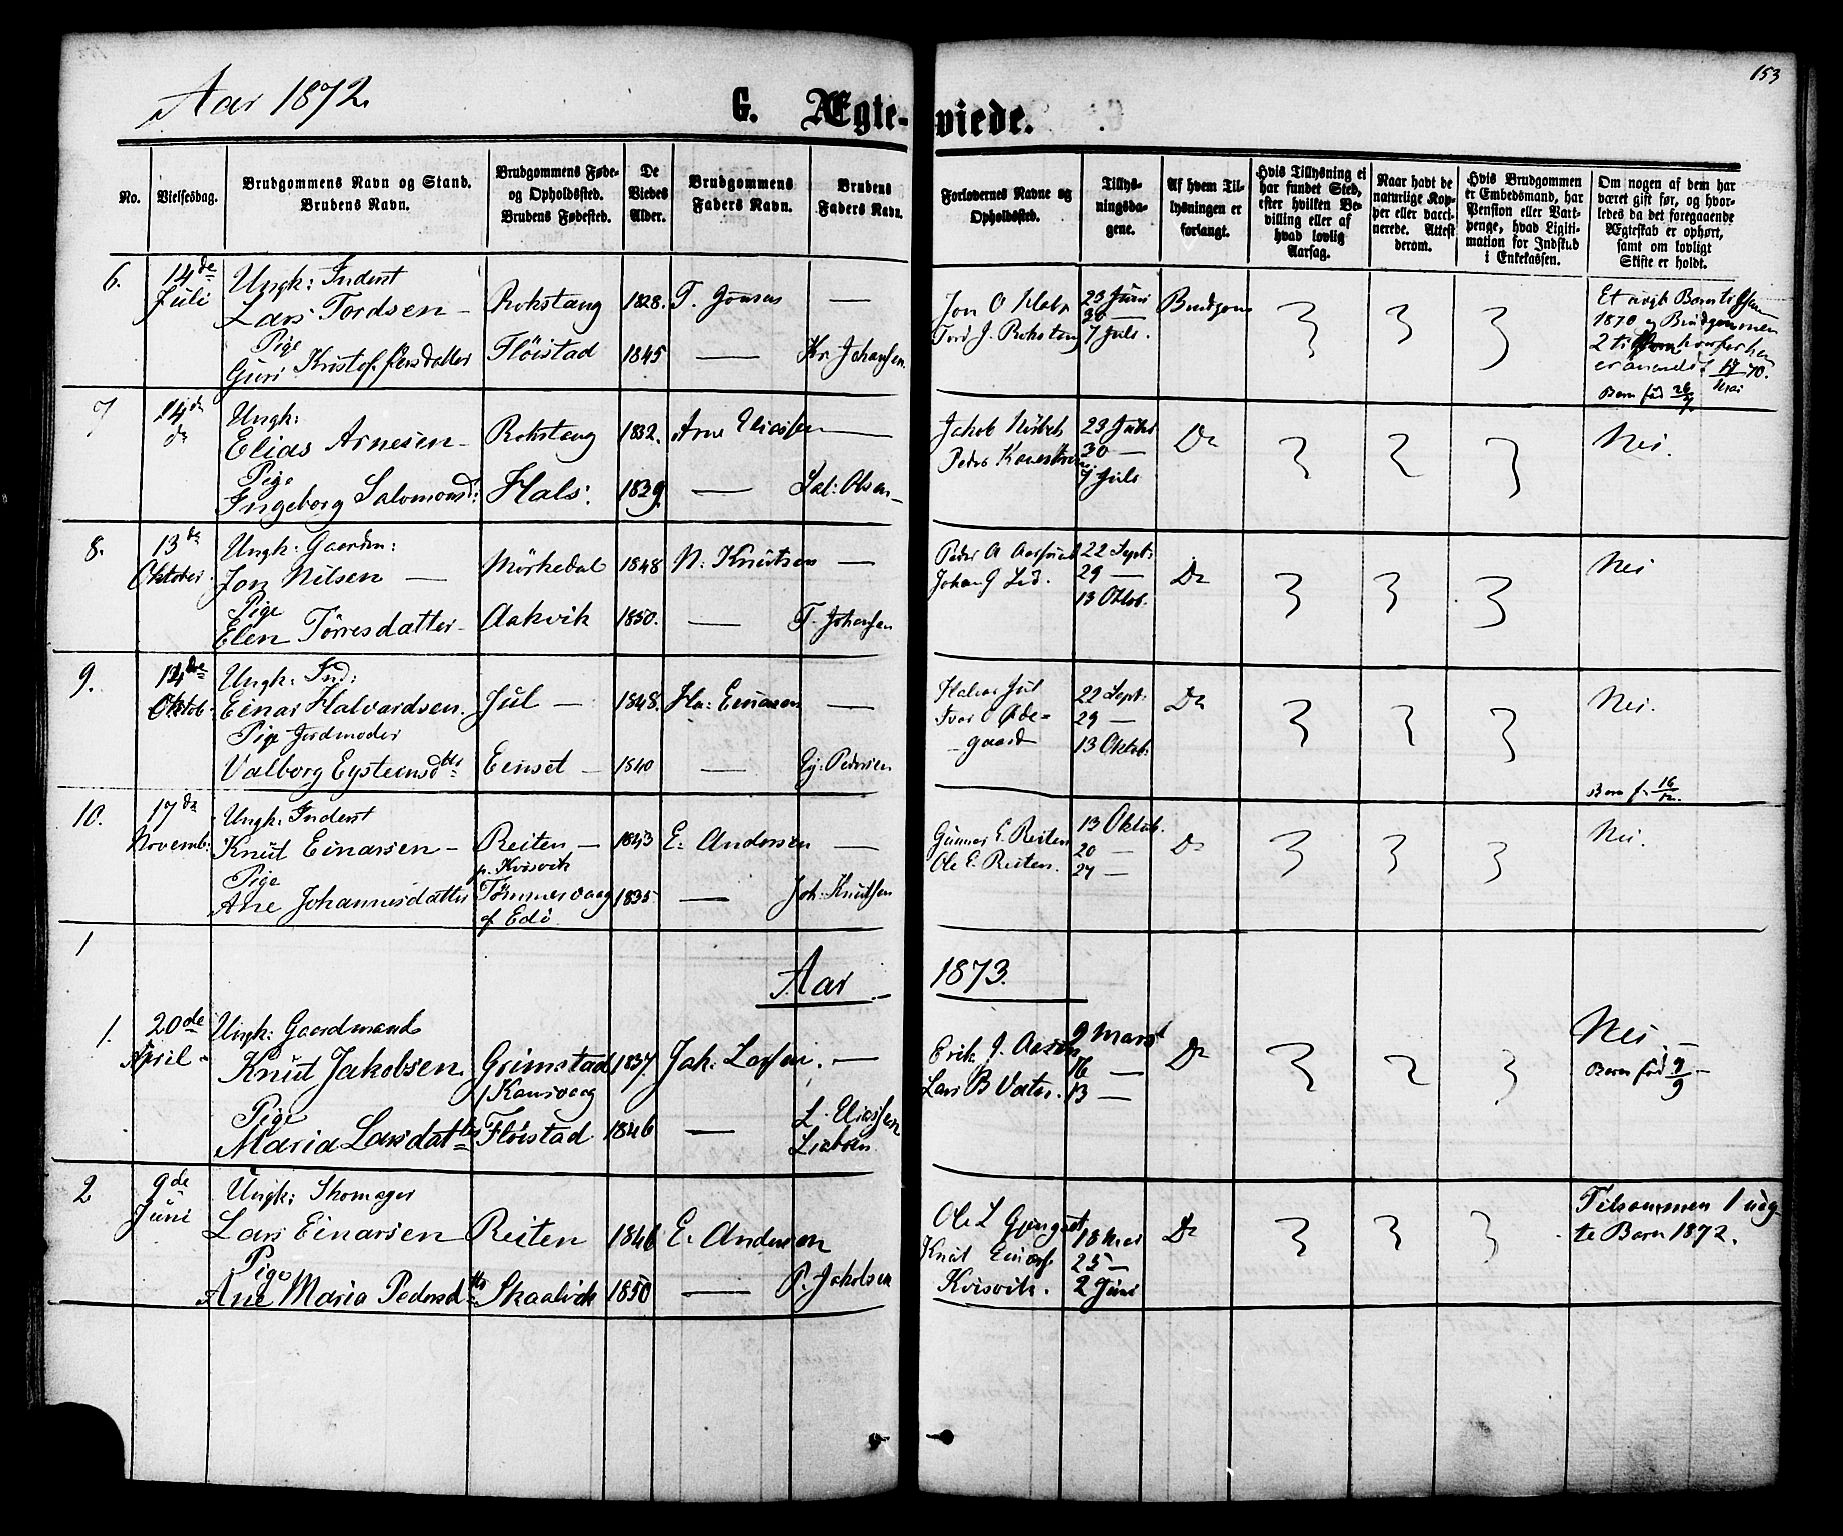 153
Aar 1872.
G. Ægte-viede.
No.
Vielsesdag.
Brudgommens Navn og Stand.
Brudens Navn.
Brudgommens Føde-
og Opholdssted.
Brudens Fødested.
De
Viedes
Alder.
Brudgommens
Faders Navn.
Brudens
Faders Navn.
Forlovernes Navne og
Opholdssted.
Tillys-
ningsda-
gene.
Af hvem Til-
lysningen er
forlangt.
Hvis Tillysning ei
har fundet Sted,
efter hvilken Be-
villing eller af
hvad lovlig
Aarsag.
Naar havt de
naturlige Kop-
per eller vacci-
nerede. Attest
derom.
Hvis Brudgommen
er Embedsmand, har
Pension eller Vart-
penge, hvad Ligiti-
mation for Indskud
i Enkekassen.
Om nogen af dem har
været gift før, og hvor-
ledes da det foregaaende
Ægteskab er ophørt,
samt om lovligt
Skifte er holdt.
6.
14de
Juli
Ungk: Inderst
Lars Tordsen —
Pige
Guri Kristoffersdatter
Rokstang
Fløistad
1828.
1845
T. Jonsen
—
—
Kr Johansen.
Jon O Hals
Tord J. Rokstang
23 Juni
30 —
7 Juli.
Brudgom
1870 og Brudgommen
Barn fød 26/7
7
14de
do
Ungk:
Elias Arnesen —
Pige
Ingeborg Salomonsd:
Rokstang
Hals.
1832.
1839.
Arne Eliassen
—
—
Sal: Olsen —
Jakob
Peder
23 Juni
30 —
7 Juli
Do
Nei.
8.
13de
Oktober.
Ungk: Gaardm:
Jon Nilsen —
Pige
Elen Tørresdatter —
Mörkedal
Aakvik
1848
1850.
N. Knutsen
—
—
T. Johansen
Peder A
Johan J
22 Sept:
29 —
13 Oktob.
Do
Nei
9.
14de
Oktob.
Ungk: Ind:
Einar Halvardsen.
Pige Jordmoder
Valborg Eysteinsdtr
Jul —
Einset —
1848.
1840
Ha: Einarsen
—
—
Ey: Pedersen
Halvor Jul
Ivar O Øde-
— gaard
22 Sept:
29 —
13 Oktob:
Do
Nei.
Barn f. 16/12.
10.
17de
Novemb:
Ungk: Inderst
Knut Einarsen —
Pige
Ane Johannesdatter
Reiten —
p. Kvisvik
Tømmervaag
af Edö
1843
1835
E: Andersen
—
—
Joh: Knutsen
Gunnar E. Reiten
Ole E. Reiten.
13 Oktob.
20 —
27 —
Do
Nei.
1
Aar 1873.
1.
20de
April
Ungk: Gaardmand
Knut Jakobsen
Pige
Maria Larsdatter
Grimstad
Fløistad
1837.
1846
Jak: Larsen.
—
—
L. Eliassen
Erik J. Aasen
Lars B
9 Marst
16 —
13 —
Do
Nei. —
Barn fød 9/9 —
2
9de
Juni
Ungk: Skomager
Lars Einarsen
Pige
Ane Maria Pedersdtr
Reiten
Skaalvik
1846
1850
E. Andersen
—
P. Jakobsen
Ole L Gjengset
Knut Einars
Kvisvik.
18 Mai
25 —
2 Juni
Do
Tilsammen 1 uæg-
te Barn 1872.